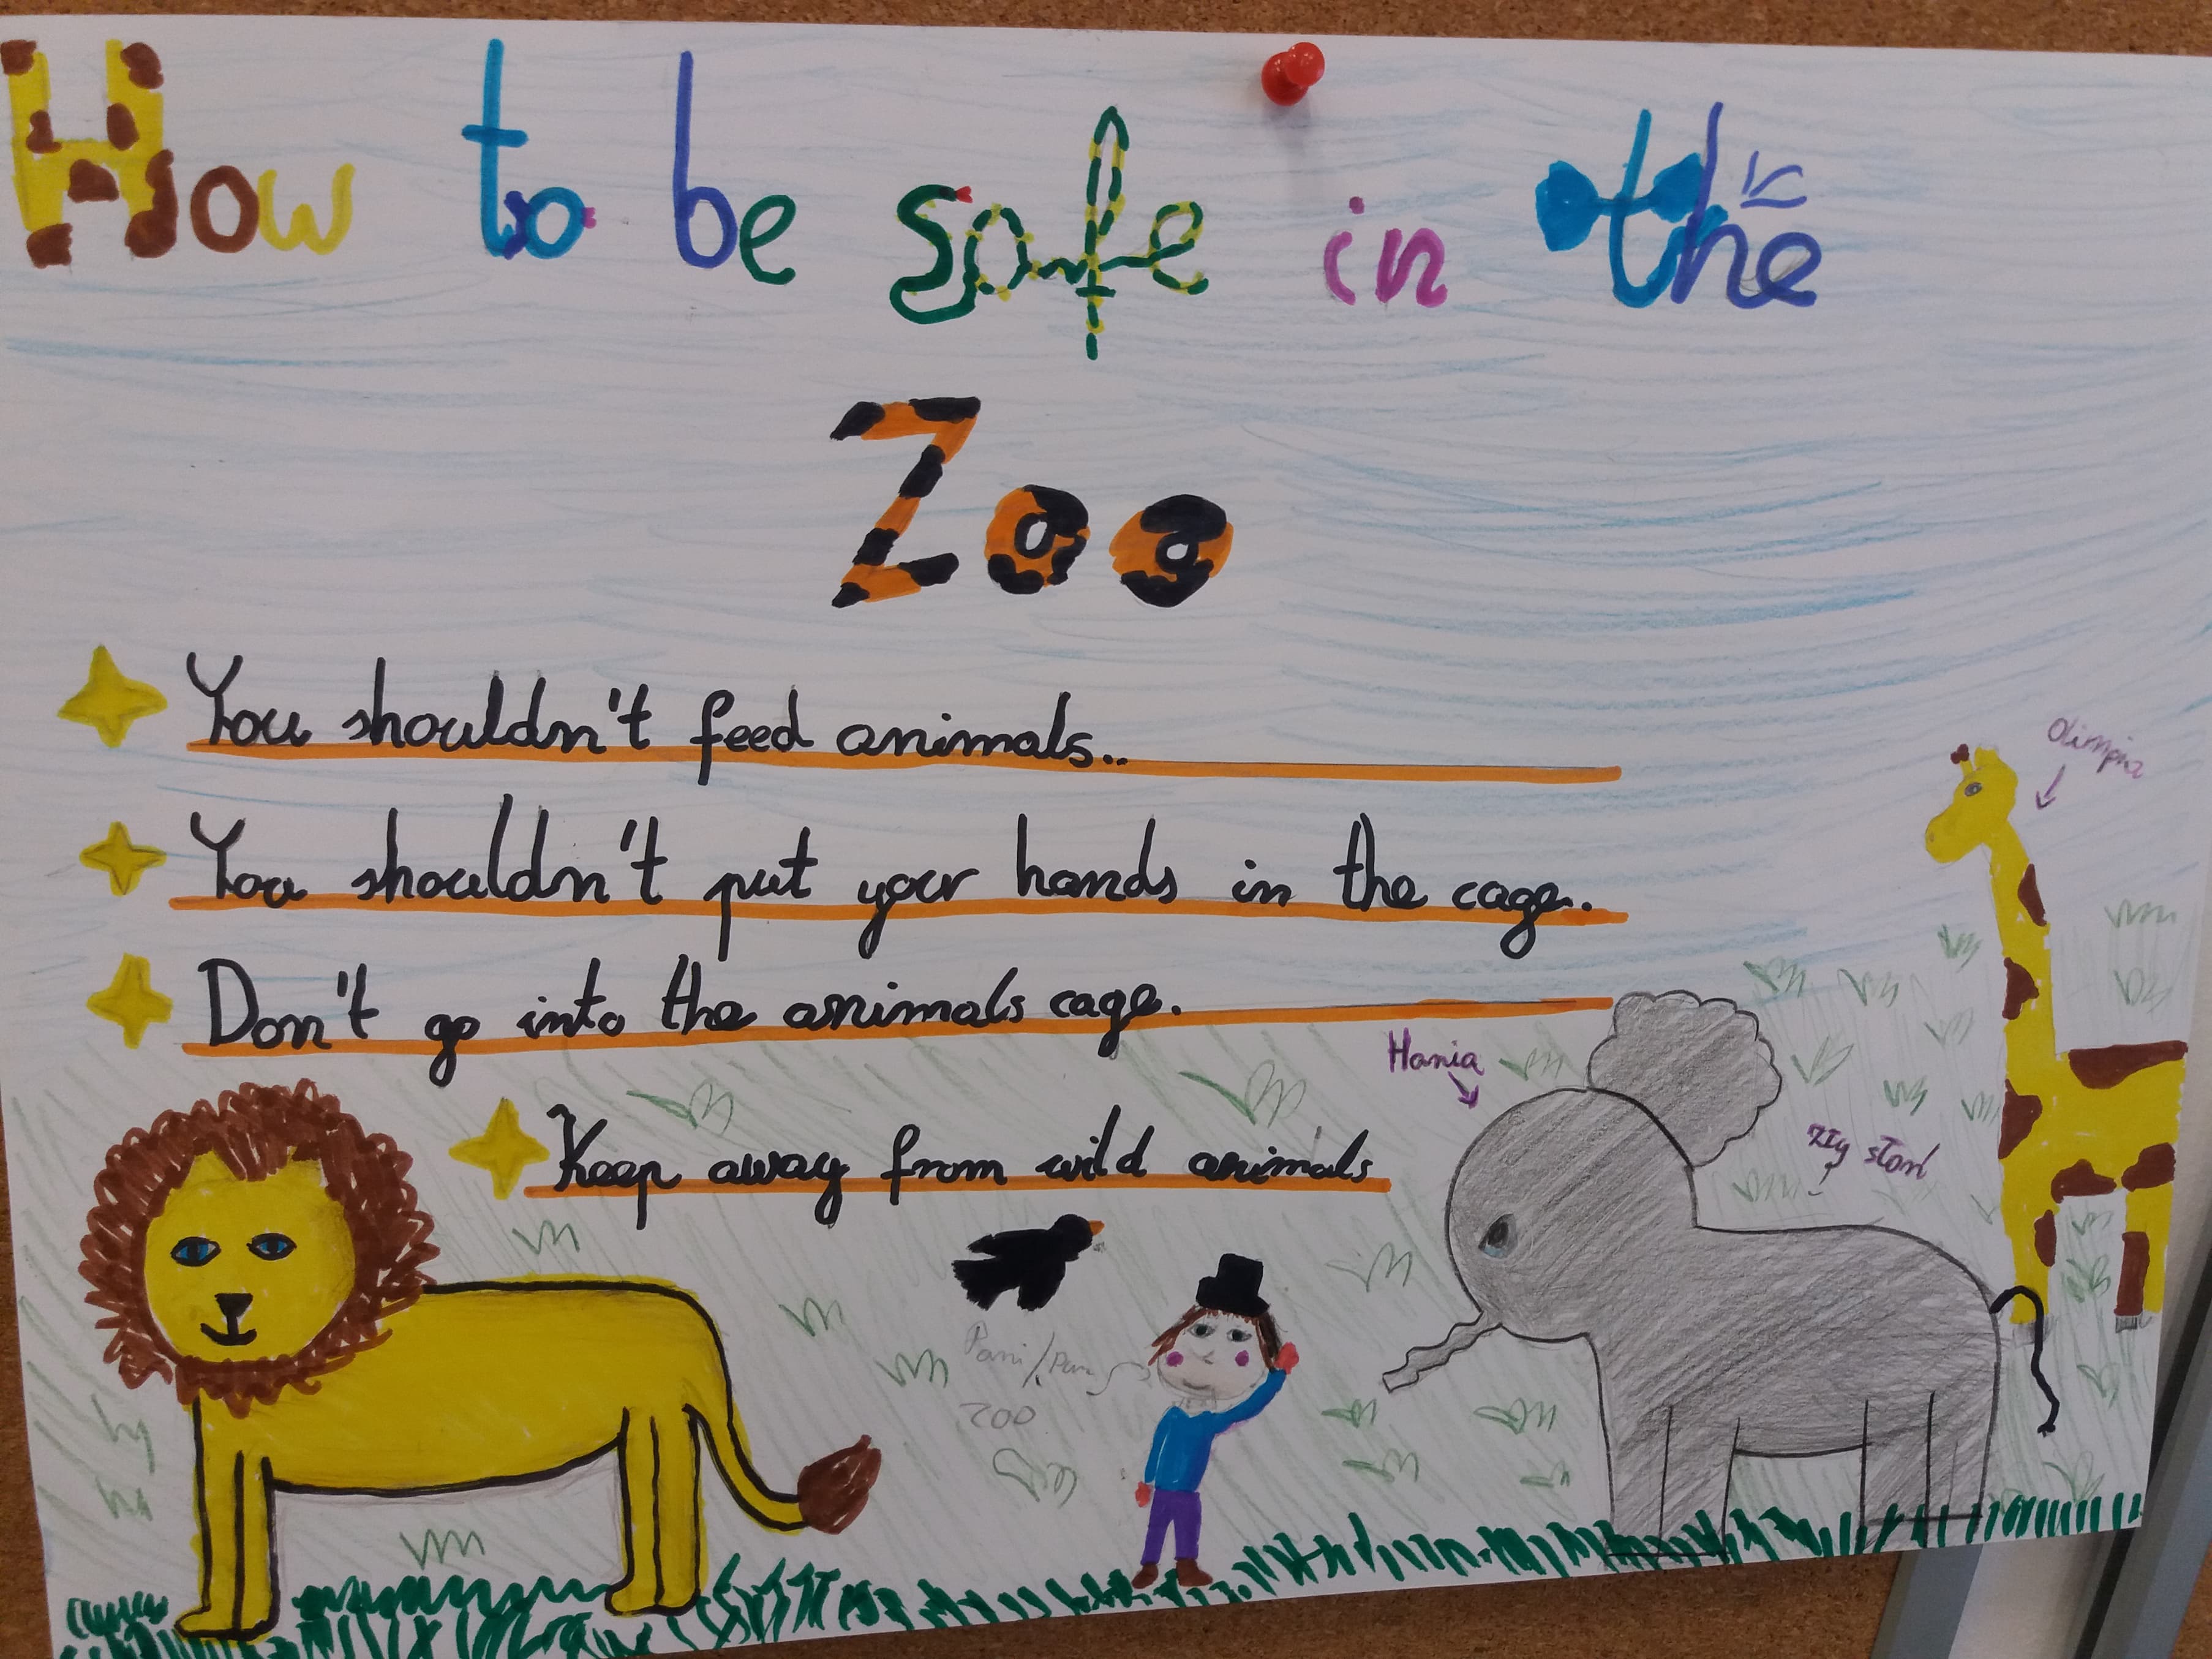 How to be safe in the
Zoo
You shouldn't feed animals..
You shouldn't put your hands in the cage..
Don't go into the animals cage.
Keep away from wild animals
Olimpia
Hania
zły słoń
Pani/Pan
ZOO